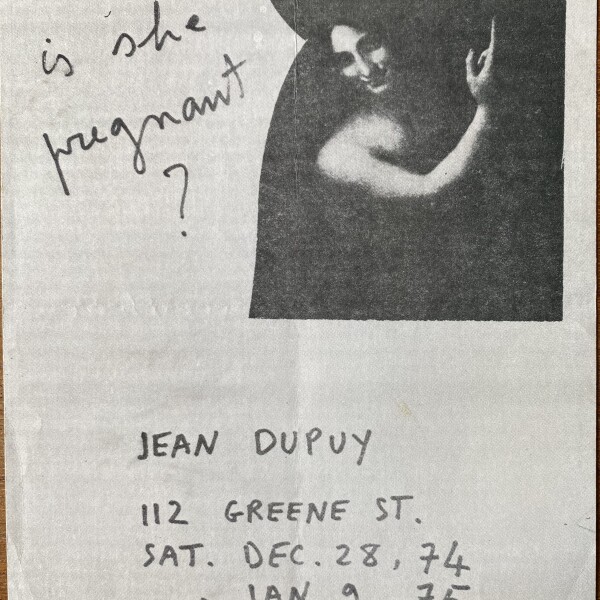 is she
pregnant
?
JEAN DUPUY
112 GREENE ST.
SAT. DEC. 28, 74
JAN 9 75